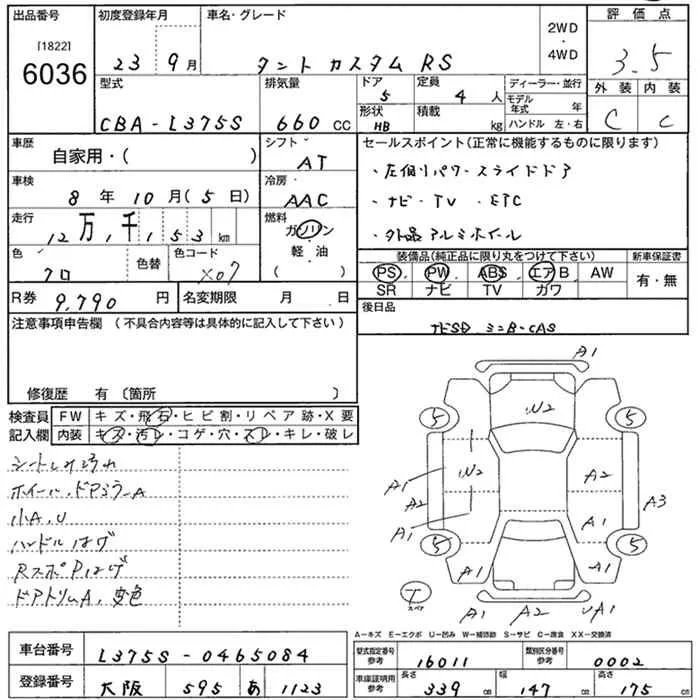 出品番号 初度登録年月 車名・グレード 評価点
[1822]
6036
23 9月 タント カスタム RS
2WD
・
4WD
3.5
型式 排気量 ドア 定員 ディーラー・並行 外装 内装
CBA-L375S 660 CC 5 4 人
形状 積載 モデル年式 年
HB kg ハンドル 左・右
C C
車歴 シフト セールスポイント(正常に機能するものに限ります)
自家用・( ) AT
・左側パワースライドドア
車検 冷房
8年 10月(5日) AAC
・ナビ・TV・ETC
走行 燃料
12万,1千,1 53 km ガソリン
・外品アルミホイール
軽・油
( )
色 色替 色コード
クロ X07
装備品(純正品に限り丸をつけて下さい) 新車保証書
PS PW ABS エアB AW 有・無
SR ナビ TV ガワ
R券 9,790 円 名変期限 月 日
後日品
注意事項申告欄 (不具合内容等は具体的に記入して下さい)
ナビSD ミニB・CAS
修復歴 有 〔箇所 〕
検査員 FW キズ・飛石・ヒビ割・リペア跡・X要
記入欄 内装 キズ・汚レ・コゲ・穴・スレ・キレ・破レ
シートしみ汚れ
ホイール、ドアミラーA
小A,U
ハンドルはげ
RスポPはげ
ドアトリムA,変色
A1
5 W2 5
A1 W2 A2
A2 A3
A1 A1
5 5
A1 A1
T
スペア
A1 A2 UA1
A-キズ E-エクボ U-凹み W-補修跡 S-サビ C-腐食 XX-交換済
車台番号 L375S-0465084
型式指定番号 参考 16011 類別区分番号 参考 0002
登録番号 大阪 595 あ 1123
車庫証明用 参考 長さ 339 cm 幅 147 cm 高さ 175 cm